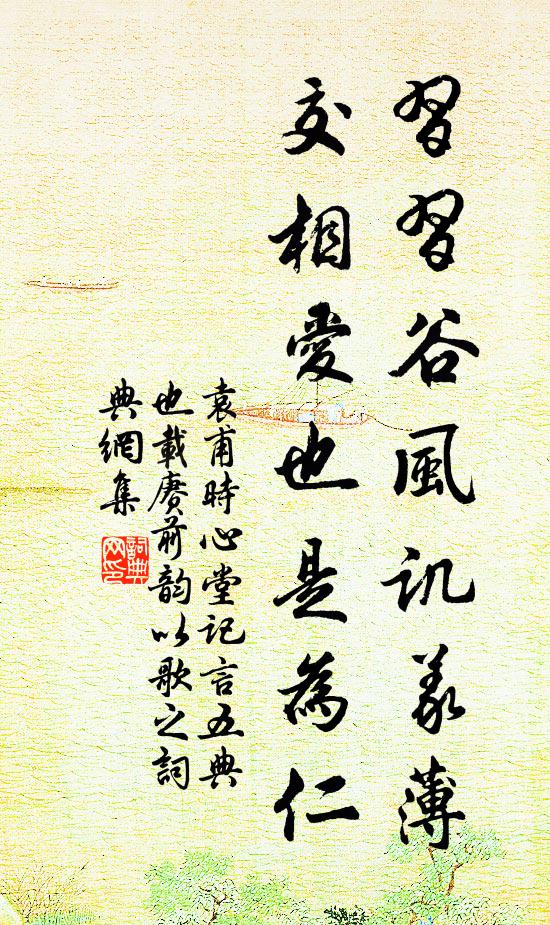 習習谷風訊義薄
交相愛也是為仁
袁甫時心堂記言五典
也載賡前韵以歌之詞
典網集
詞典
网印